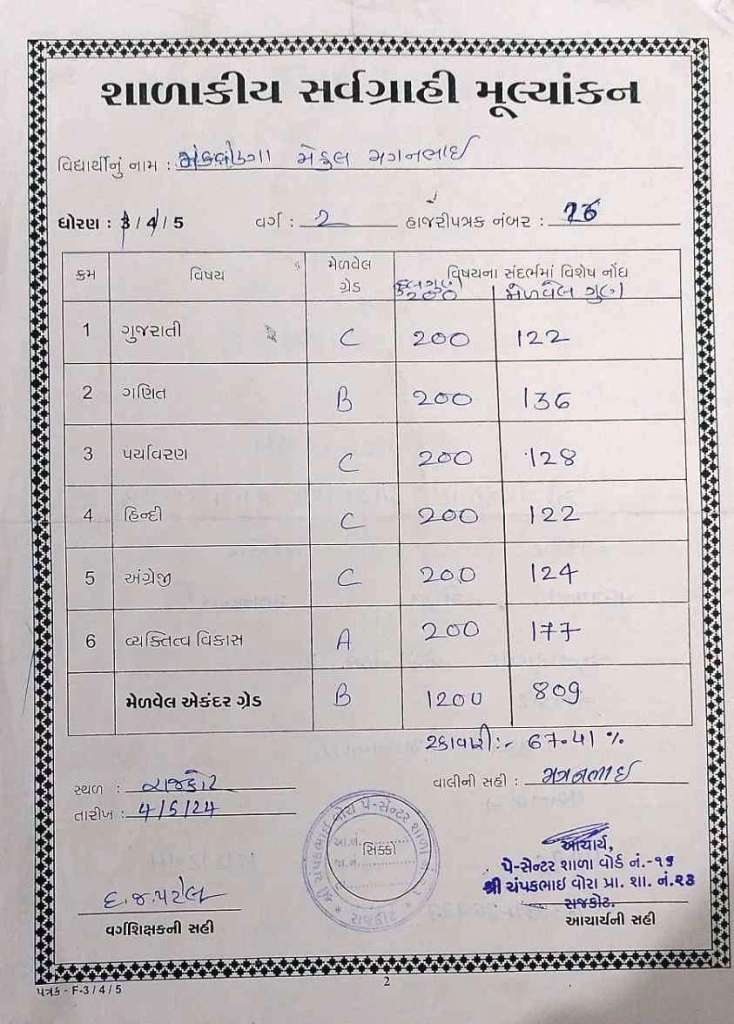 શાળાકીય સર્વગ્રાહી મૂલ્યાંકન
વિદ્યાર્થીનું નામ : મેહુલ મગનભાઈ
ધોરણ : 3 / 4 / 5 વર્ગ : 2 હાજરીપત્રક નંબર :
ક્રમ વિષય મેળવેલ ગ્રેડ વિષયના સંદર્ભમાં વિશેષ નોંધ
કુલગુણ 200 મેળવેલ ગુણ
1 ગુજરાતી C 200 122
2 ગણિત B 200 136
3 પર્યાવરણ C 200 128
4 હિન્દી C 200 122
5 અંગ્રેજી C 200 124
6 વ્યક્તિત્વ વિકાસ A 200 177
મેળવેલ એકંદર ગ્રેડ B 1200 809
ટકાવારી:- 67.41 %
સ્થળ : રાજકોટ વાલીની સહી : મગનભાઈ
તારીખ : 4/5/24
સિક્કો
આચાર્ય,
પે-સેન્ટર શાળા વોર્ડ નં.-૧૬
શ્રી ચંપકભાઈ વોરા પ્રા. શા. નં.૨૩
રાજકોટ.
દ.જ.પટેલ
વર્ગશિક્ષકની સહી આચાર્યની સહી
પત્રક - F-3 / 4 / 5 2